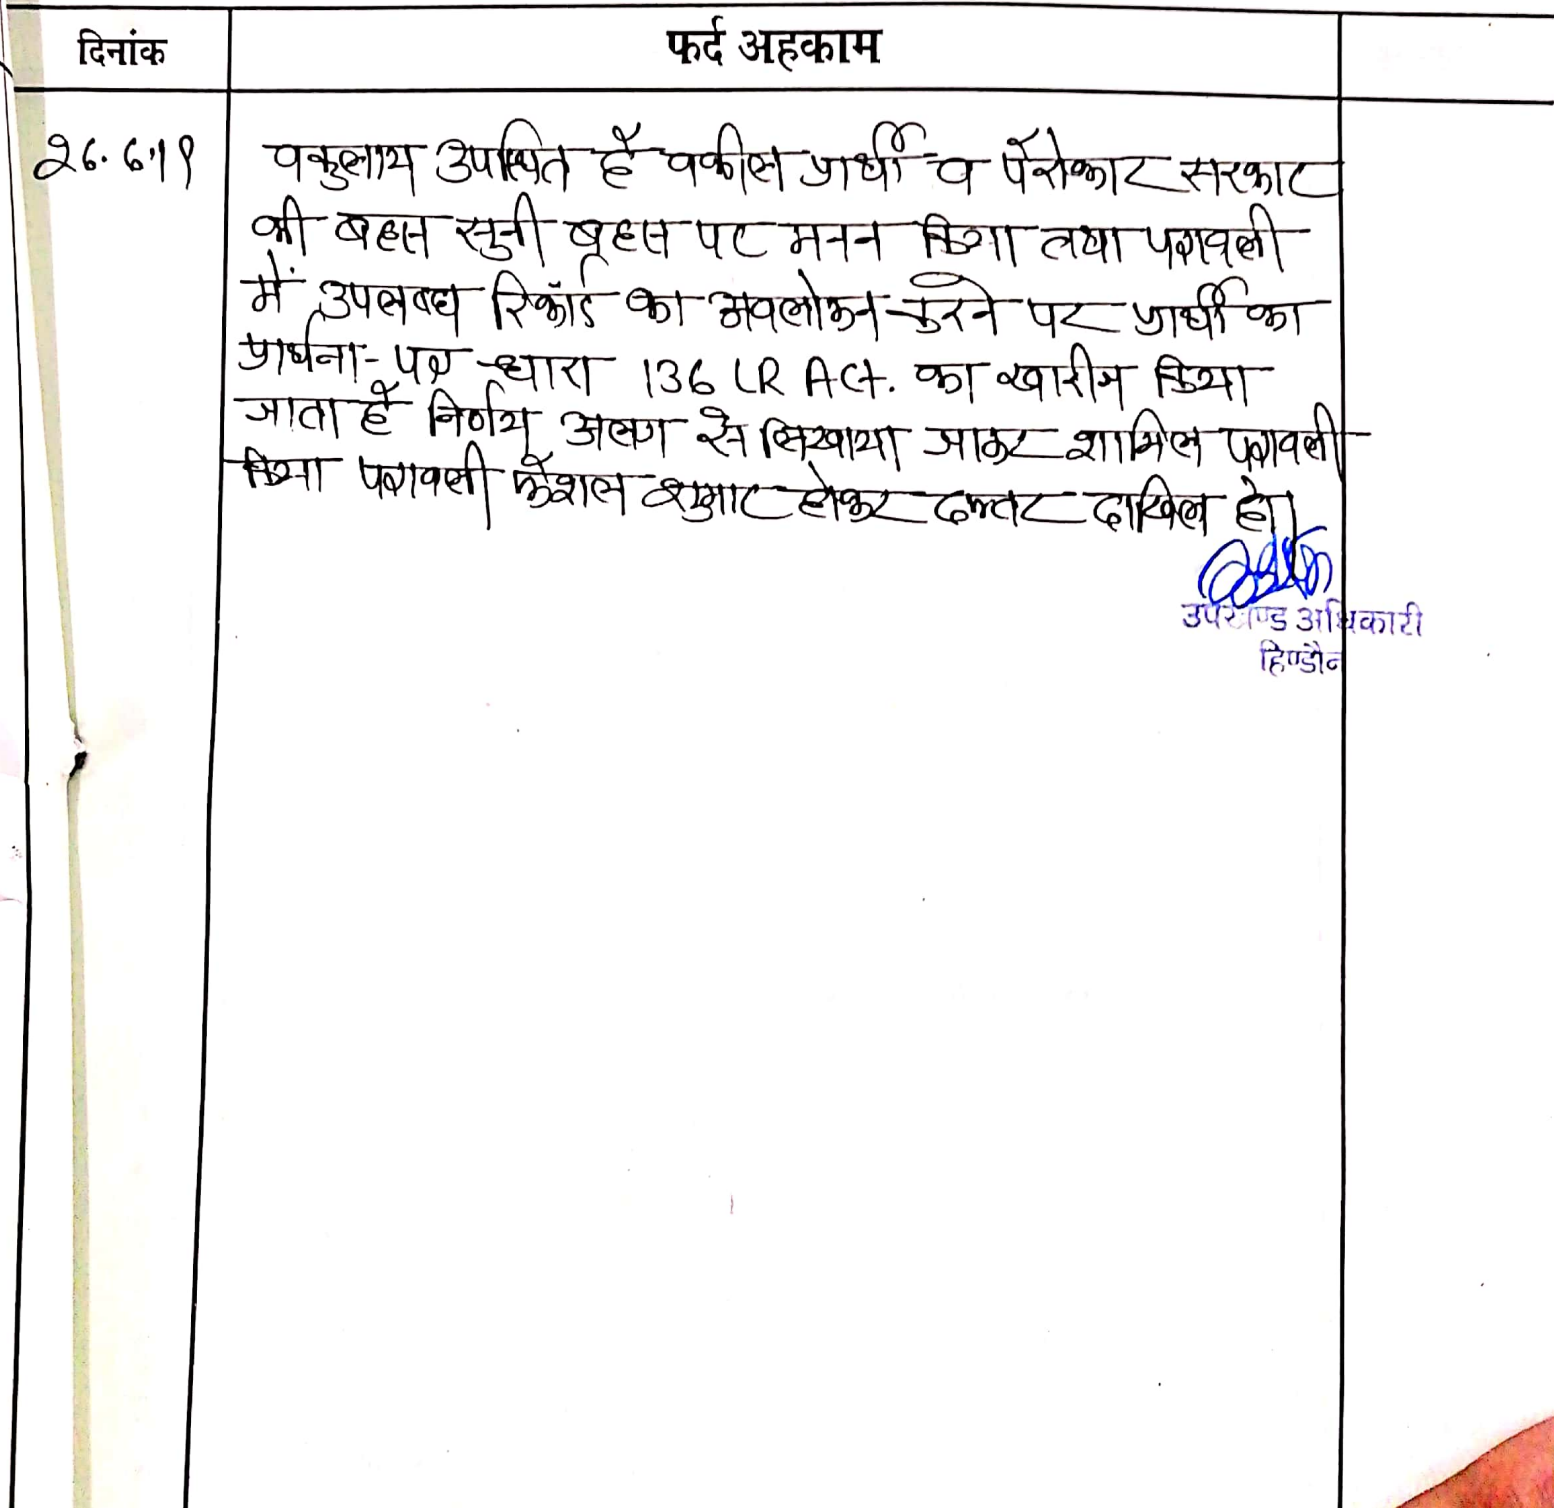 दिनांक
फर्द अहकाम
26.6.19
वकुलाय उपस्थित है वकील प्रार्थी व पैरोकार सरकार
की बहस सुनी बहस पर मनन किया तथा पत्रावली
में उपलब्ध रिकॉर्ड का अवलोकन करने पर प्रार्थी का
प्रार्थना-पत्र धारा 136 LR Act. का खारीज किया
जाता है निर्णय अलग से लिखाया जाकर शामिल पत्रावली
किया पत्रावली फैशल शुमार होकर दफ्तर दाखिल हो।
उपखण्ड अधिकारी
हिण्डौन